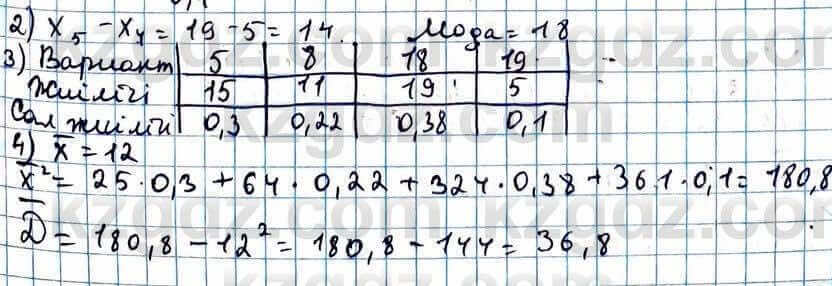 2) x₅ - x₄ = 19 - 5 = 14. Мода = 18
3) Вариант 5 8 18 19
Жиілігі 15 11 19 5
Сал жиілігі 0,3 0,22 0,38 0,1
4) x̄ = 12
x̄² = 25·0,3 + 64·0,22 + 324·0,38 + 361·0,1 = 180,8
D̄ = 180,8 - 12² = 180,8 - 144 = 36,8